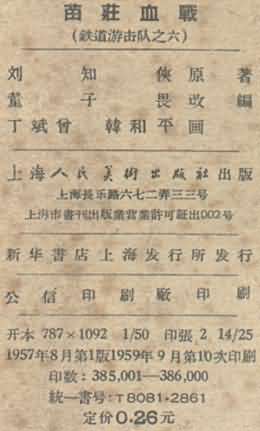 苗莊血戰
(鉄道游击队之六)
刘知俠原著
董子畏改編
丁斌曾 韓和平画
上海人民美術出版社出版
上海長乐路六七二弄三三号
上海市書刊出版業营業許可証出002号
新华書店上海发行所发行
公信印刷厰印刷
开本 787×1092 1/50 印張 2 14/25
1957年8月第1版1959年9月第10次印刷
印数: 385,001—386,000
統一書号: T8081·2861
定价0.26元